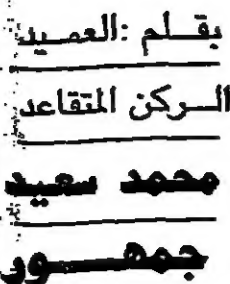 بقلم : العميد
الركن المتقاعد
محمد سعيد
جمهور